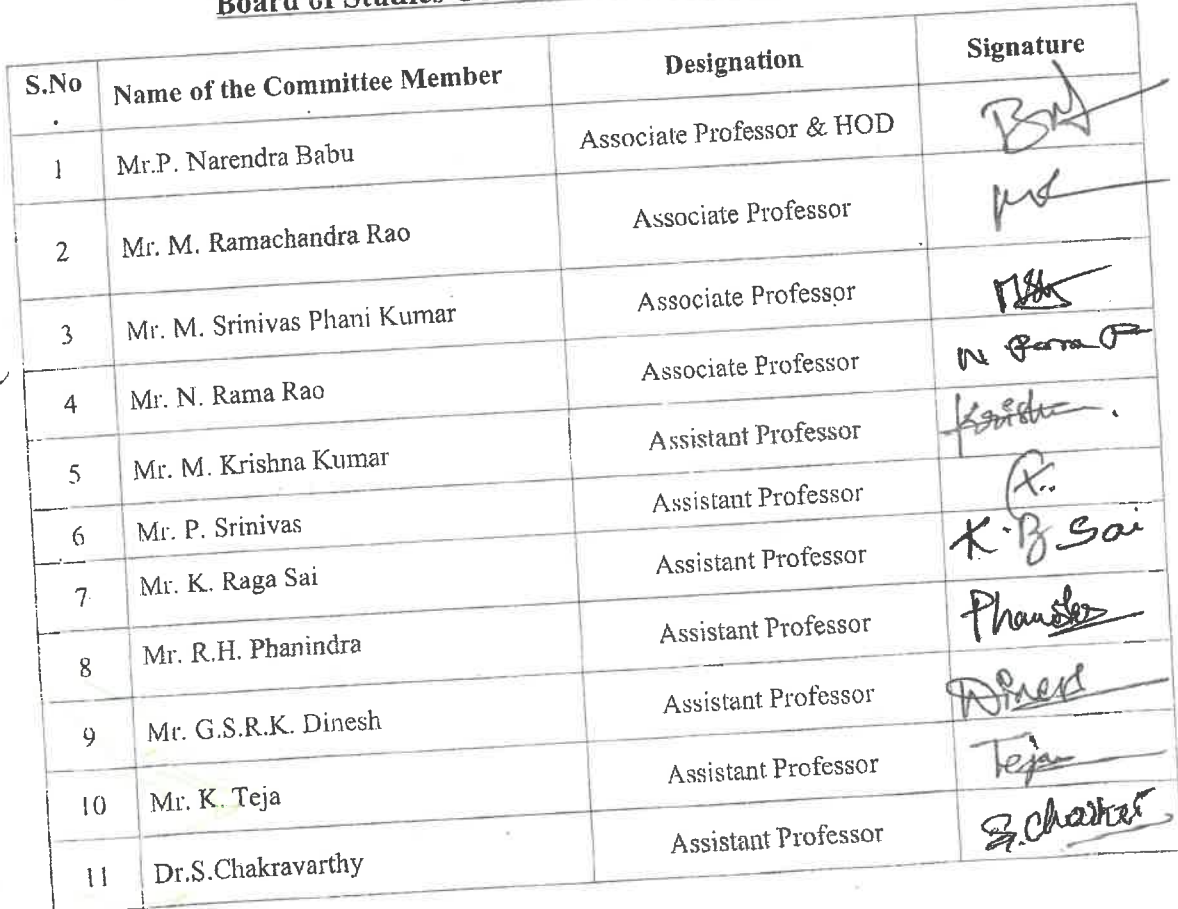 Board of Studies
S.No. Name of the Committee Member Designation Signature
1 Mr.P. Narendra Babu Associate Professor & HOD
2 Mr. M. Ramachandra Rao Associate Professor
3 Mr. M. Srinivas Phani Kumar Associate Professor
4 Mr. N. Rama Rao Associate Professor
5 Mr. M. Krishna Kumar Assistant Professor
6 Mr. P. Srinivas Assistant Professor
7 Mr. K. Raga Sai Assistant Professor
8 Mr. R.H. Phanindra Assistant Professor
9 Mr. G.S.R.K. Dinesh Assistant Professor Dinesh
10 Mr. K. Teja Assistant Professor Teja
11 Dr.S.Chakravarthy Assistant Professor